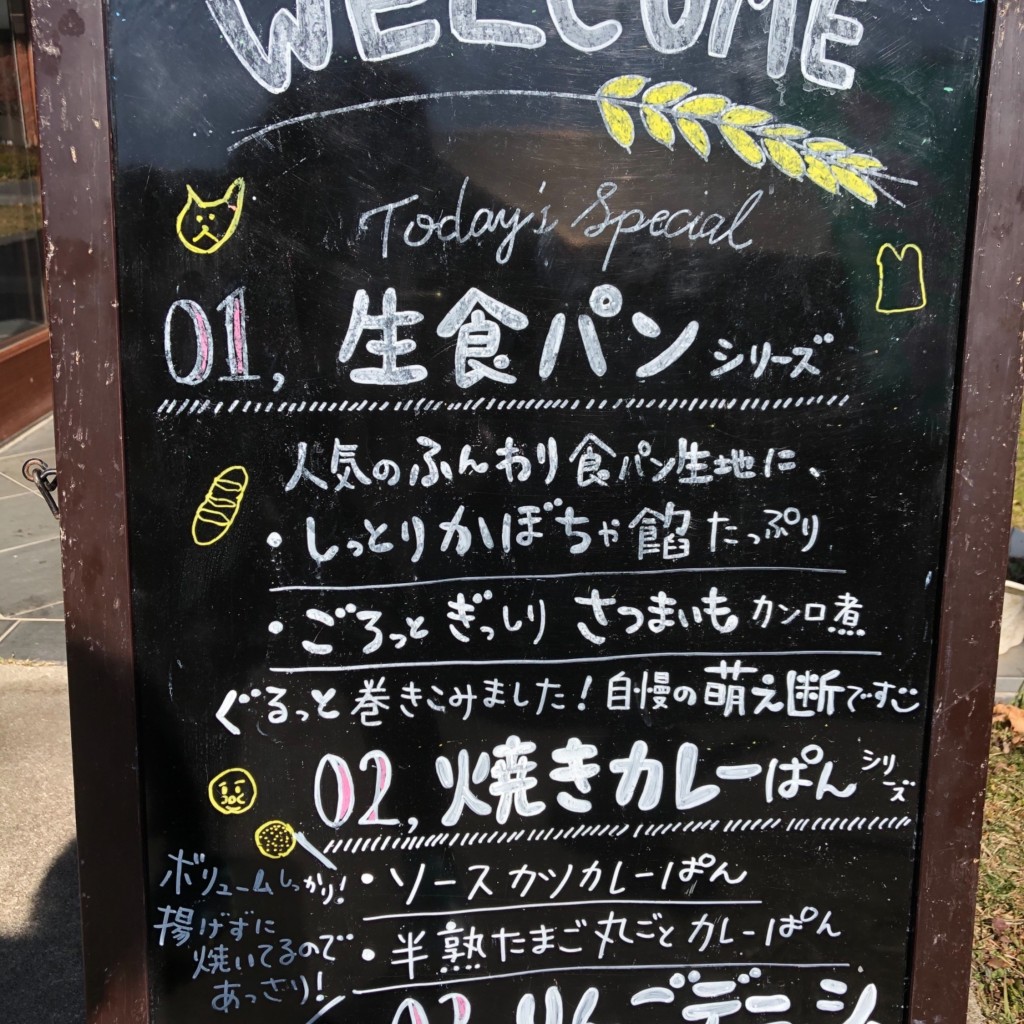 WELCOME
Today's Special
01, 生食パン シリーズ
人気のふんわり食パン生地に、
・しっとりかぼちゃ餡たっぷり
・ごろっとぎっしり さつまいもカンロ煮
ぐるっと巻きこみました!自慢の萌え断です
02, 焼きカレーぱん シリーズ
ボリュームしっかり!
揚げずに
焼いてるので
あっさり!
・ソースカツカレーぱん
・半熟たまご丸ごとカレーぱん
03